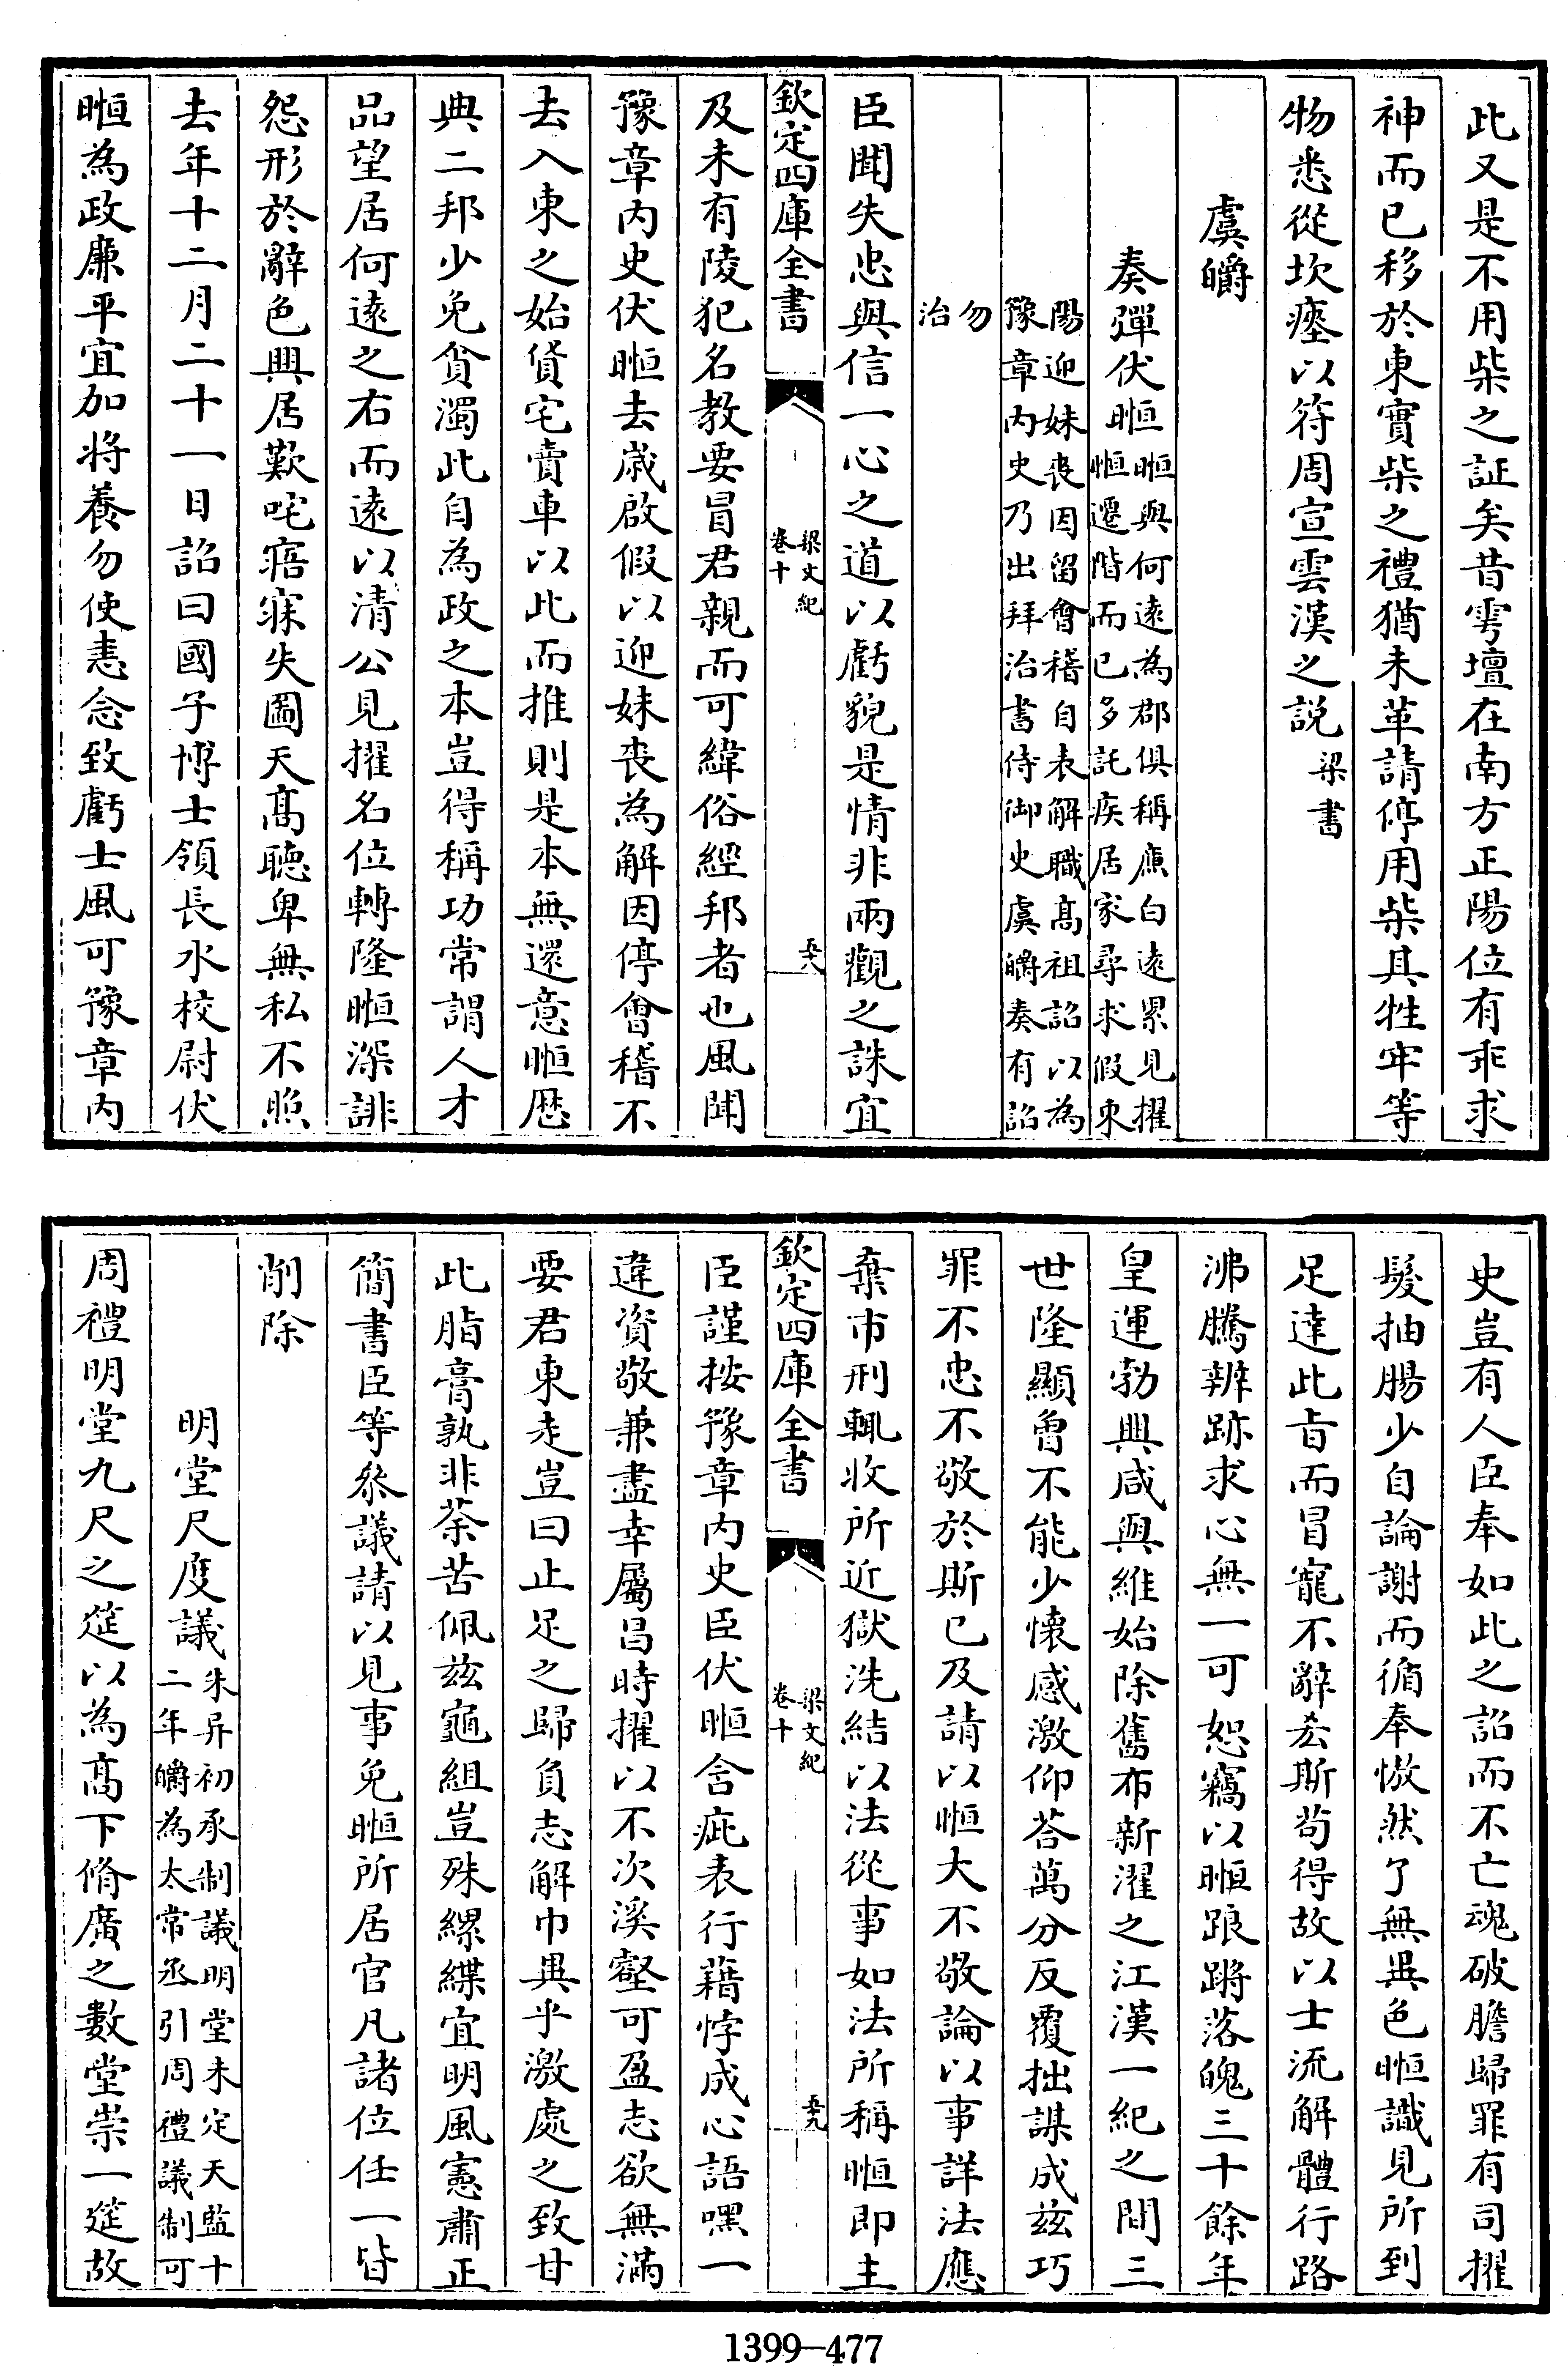 此又是不用柴之証矣昔雩壇在南方正陽位有乖求
神而已移於東實柴之禮猶未革請停用柴其牲牢等
物悉從坎瘞以符周宣雲漢之説梁書
虞㬭
奏彈伏暅暅與何遠為郡俱稱亷白遠累見擢
暅遷階而已多託疾居家尋求假東
陽迎妹喪因留會稽自表解職髙祖詔以為
豫章内史乃出拜治書侍御史虞㬭奏有詔
勿
治
臣聞失忠與信一心之道以虧貌是情非兩觀之誅宜
欽定四庫全書
梁文紀
卷十
五十八
及未有陵犯名教要冒君親而可緯俗經邦者也風聞
豫章内史伏暅去嵗啟假以迎妹喪為解因停會稽不
去入東之始貨宅賣車以此而推則是本無還意暅歴
典二邦少免貪濁此自為政之本豈得稱功常謂人才
品望居何逺之右而逺以清公見擢名位轉隆暅深誹
怨形於辭色興居歎咤寤寐失圖天髙聴卑無私不照
去年十二月二十一日詔曰國子博士領長水校尉伏
暅為政亷平宜加將養勿使恚念致虧士風可豫章内
史豈有人臣奉如此之詔而不亡魂破膽歸罪有司擢
髮抽腸少自論謝而循奉慠然了無異色暅識見所到
足達此㫖而冒寵不辭厷斯苟得故以士流解體行路
沸騰辨跡求心無一可恕竊以暅踉蹡落魄三十餘年
皇運勃興咸與維始除舊布新濯之江漢一紀之間三
世隆顯曾不能少懐感激仰荅萬分反覆拙謀成兹巧
罪不忠不敬於斯已及請以暅大不敬論以事詳法應
棄市刑輒收所近獄洗結以法從事如法所稱暅即主
欽定四庫全書
梁文紀
卷十
五十九
臣謹按豫章内史臣伏暅含疵表行藉悖成心語嘿一
違資敬兼盡幸屬昌時擢以不次溪壑可盈志欲無滿
要君東走豈曰止足之歸負志解巾異乎激處之致甘
此脂膏孰非荼苦佩兹龜組豈殊縲緤宜明風憲肅正
簡書臣等參議請以見事免暅所居官凡諸位任一皆
削除
明堂尺度議朱异初承制議明堂未定天監十
二年㬭為太常丞引周禮議制可
周禮明堂九尺之筵以為髙下脩廣之數堂崇一筵故
1399—477